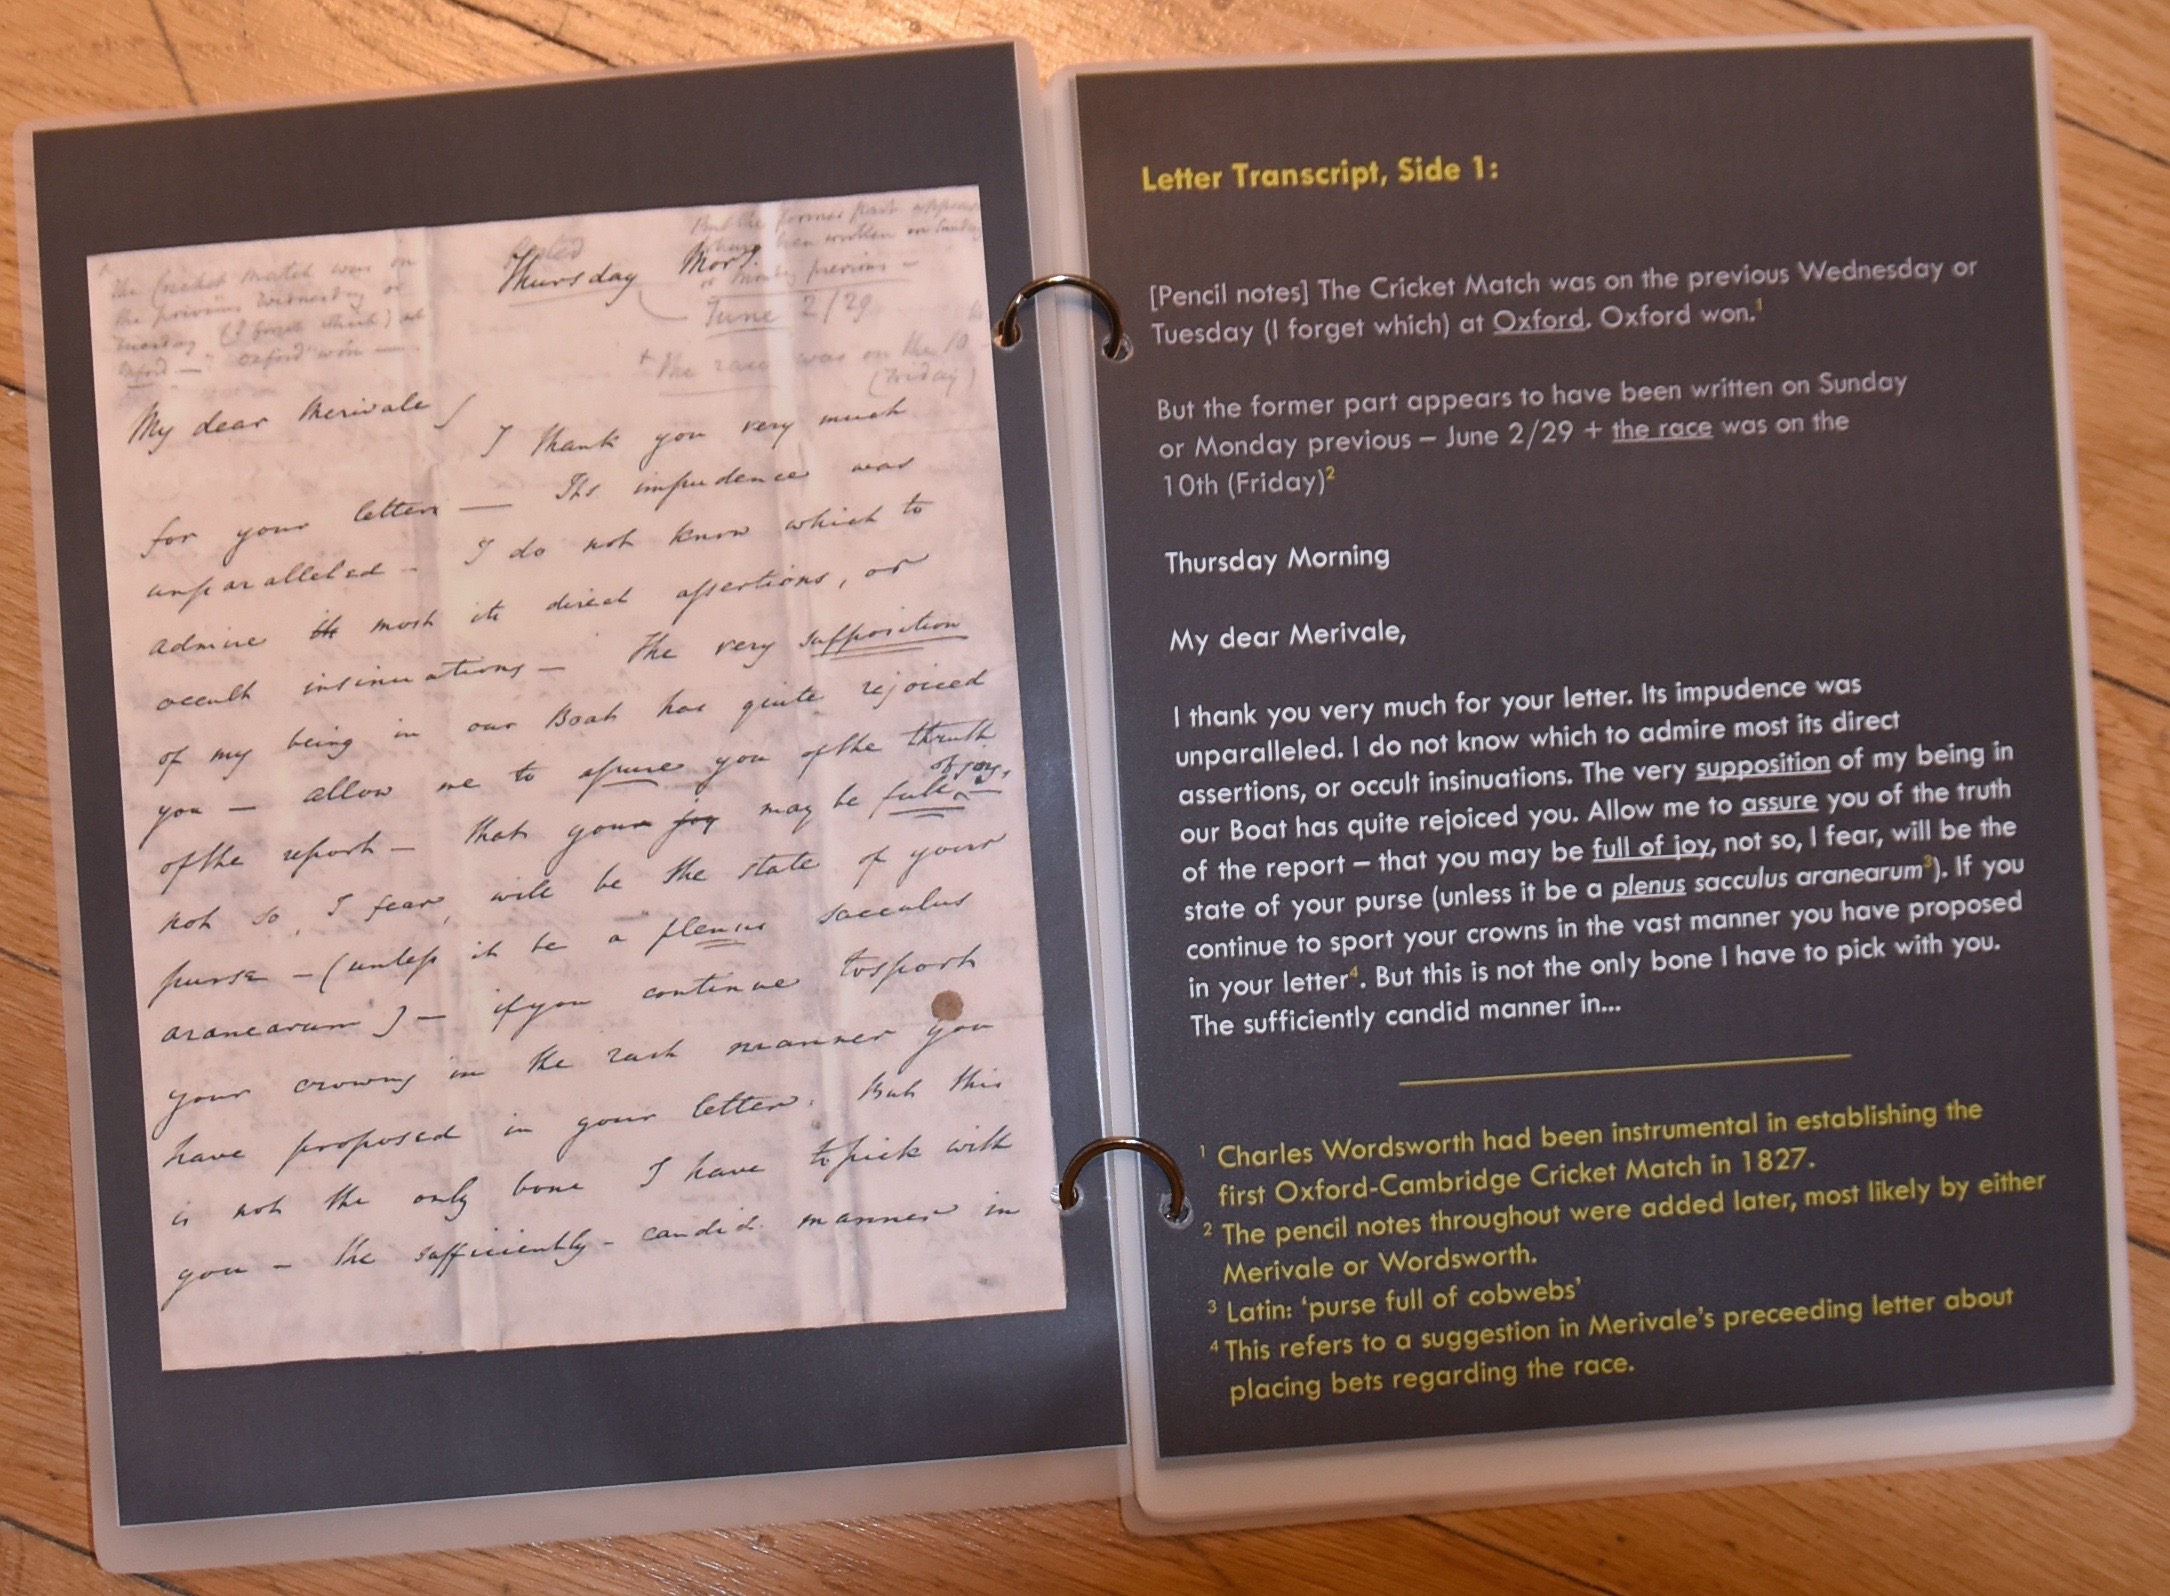 The Cricket Match was on
the previous Wednesday or
Tuesday (I forget which) at
Oxford — Oxford won —
But the former part appears
to have been written on Sunday
or Monday previous —
Thursday Morg.
June 2/29
+ the race was on the 10
(Friday)
My dear Merivale
I thank you very much
for your letter — Its impudence was
unparalleled - I do not know which to
admire most its direct assertions, or
occult insinuations — The very supposition
of my being in our Boat has quite rejoiced
you — allow me to assure you of the thruth
of the report — that your joy may be full of joy,
not so, I fear, will be the state of your
purse — (unless it be a plenus sacculus
aranearum) — if you continue to sport
your crowns in the rash manner you
have proposed in your letter. But this
is not the only bone I have to pick with
you — the sufficiently - candid manner in
Letter Transcript, Side 1:
[Pencil notes] The Cricket Match was on the previous Wednesday or
Tuesday (I forget which) at Oxford. Oxford won.¹
But the former part appears to have been written on Sunday
or Monday previous – June 2/29 + the race was on the
10th (Friday)²
Thursday Morning
My dear Merivale,
I thank you very much for your letter. Its impudence was
unparalleled. I do not know which to admire most its direct
assertions, or occult insinuations. The very supposition of my being in
our Boat has quite rejoiced you. Allow me to assure you of the truth
of the report – that you may be full of joy, not so, I fear, will be the
state of your purse (unless it be a plenus sacculus aranearum³). If you
continue to sport your crowns in the vast manner you have proposed
in your letter⁴. But this is not the only bone I have to pick with you.
The sufficiently candid manner in...
¹ Charles Wordsworth had been instrumental in establishing the
first Oxford-Cambridge Cricket Match in 1827.
² The pencil notes throughout were added later, most likely by either
Merivale or Wordsworth.
³ Latin: ‘purse full of cobwebs’
⁴ This refers to a suggestion in Merivale’s preceeding letter about
placing bets regarding the race.